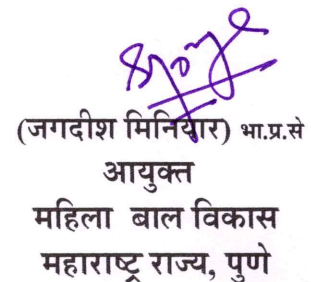 (जगदीश मिनियार) भा.प्र.से
आयुक्त
महिला बाल विकास
महाराष्ट्र राज्य, पुणे